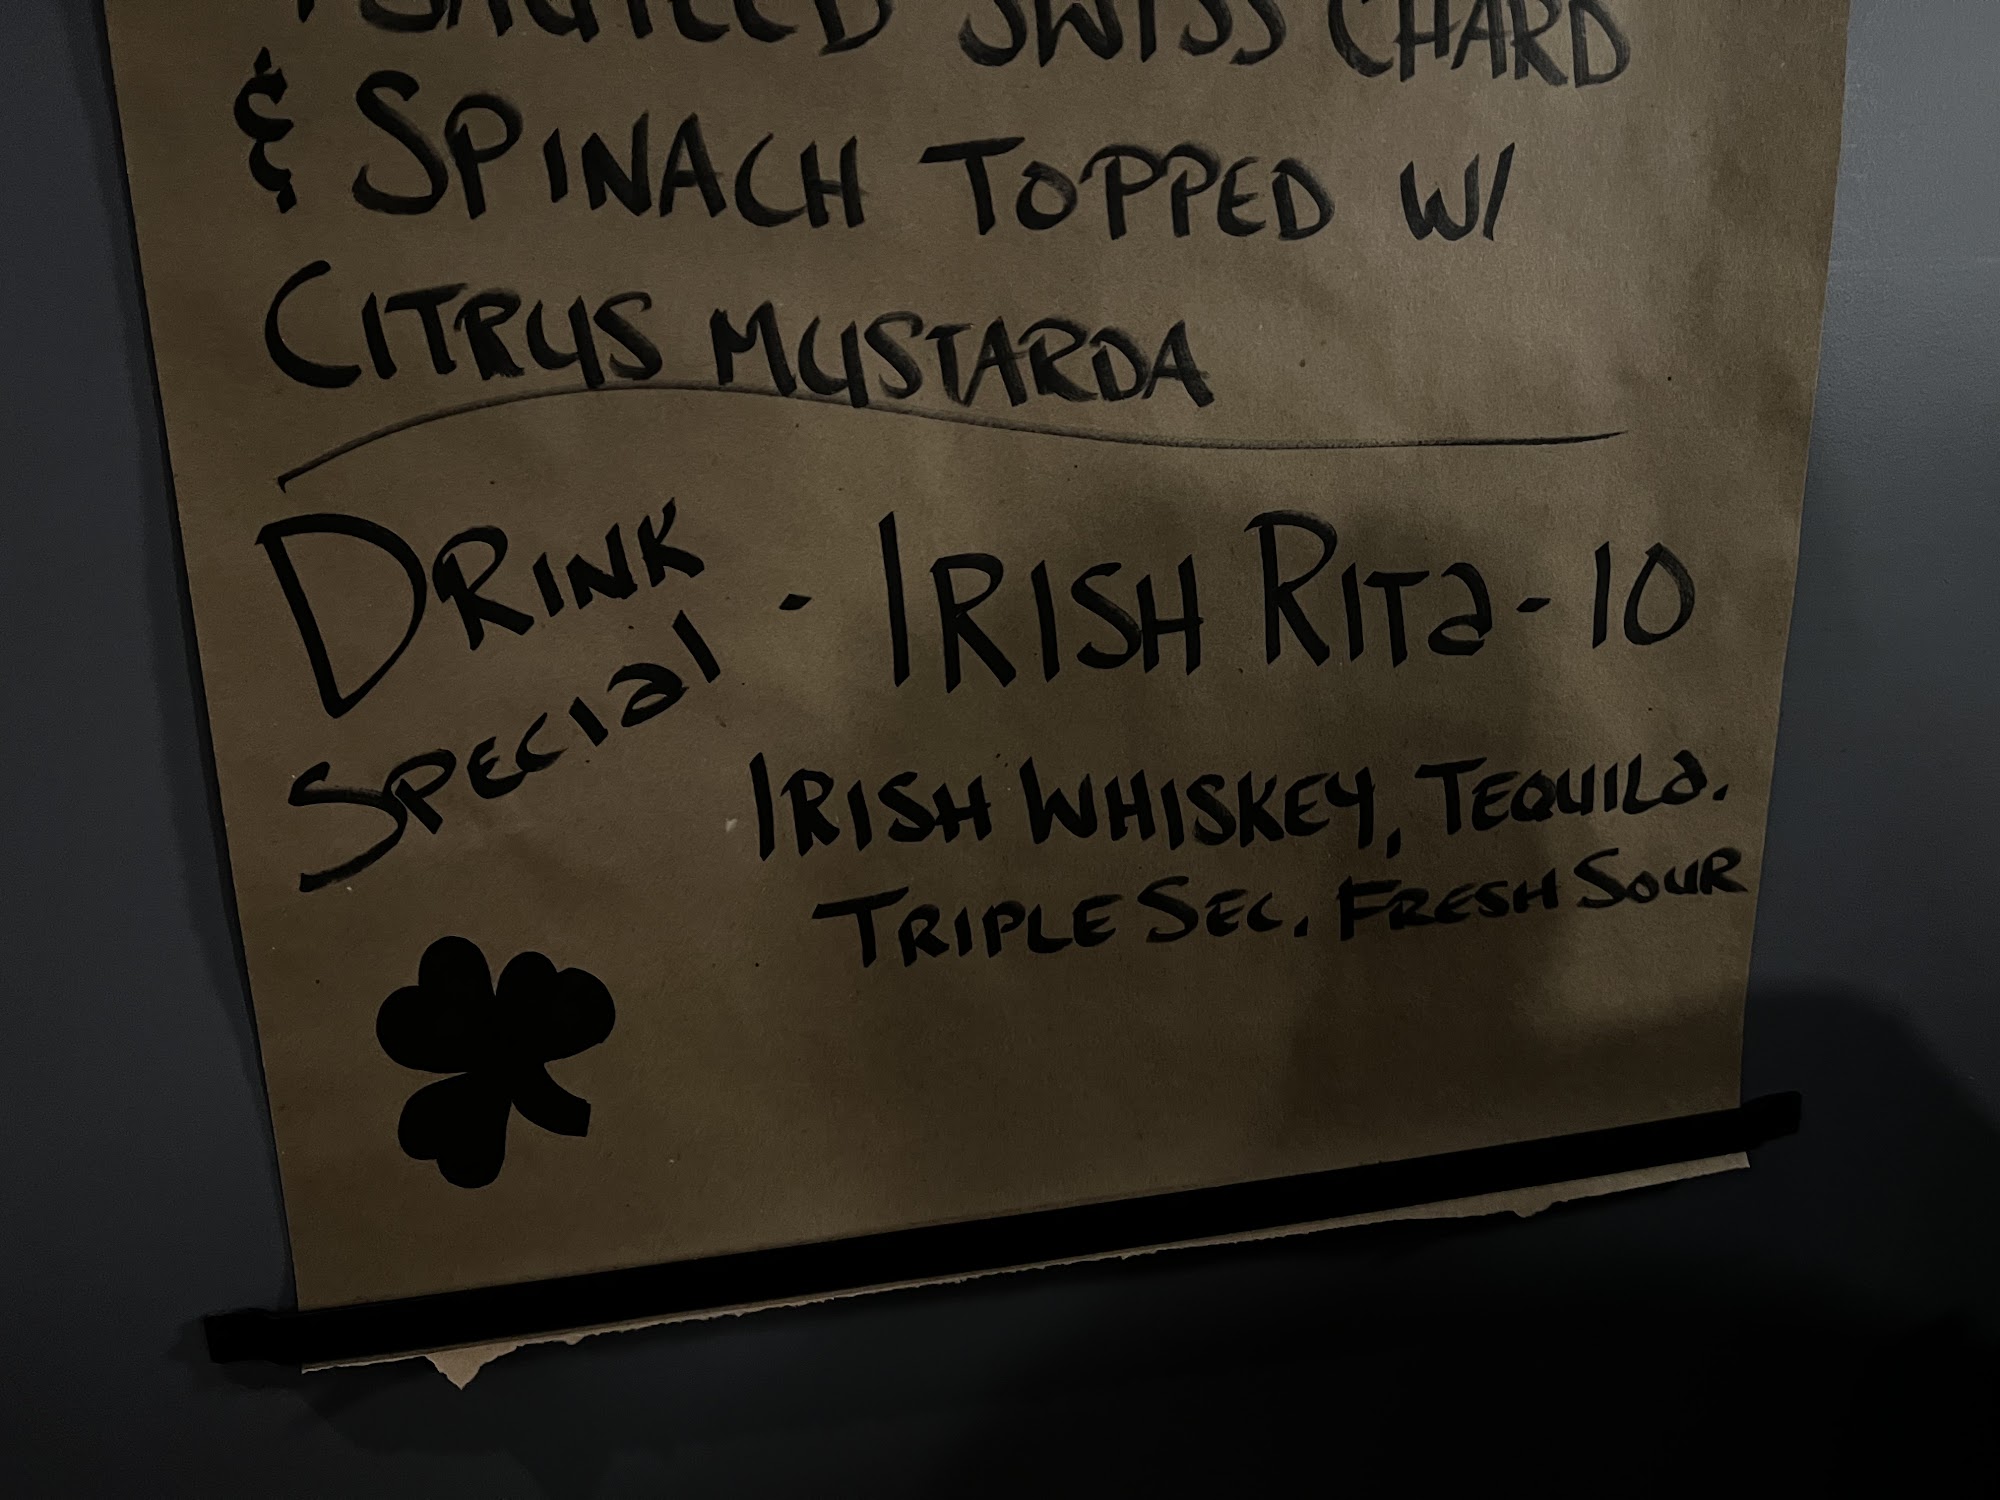 SAUTEED SWISS CHARD
& SPINACH TOPPED W/
CITRUS MUSTARDA
DRINK SPECIAL - IRISH RITA - 10
IRISH WHISKEY, TEQUILA.
TRIPLE SEC. FRESH SOUR